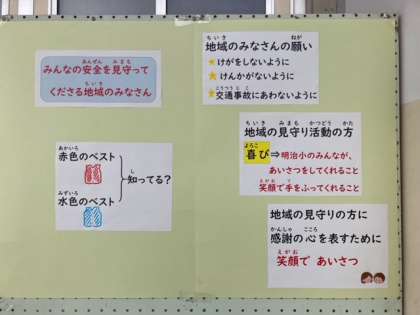 みんなの安全を見守って
くださる地域のみなさん
赤色のベスト
水色のベスト
知ってる?
地域のみなさんの願い
★けがをしないように
★けんかがないように
★交通事故にあわないように
地域の見守り活動の方
喜び⇒明治小のみんなが、
あいさつをしてくれること
笑顔で手をふってくれること
地域の見守りの方に
感謝の心を表すために
笑顔で あいさつ